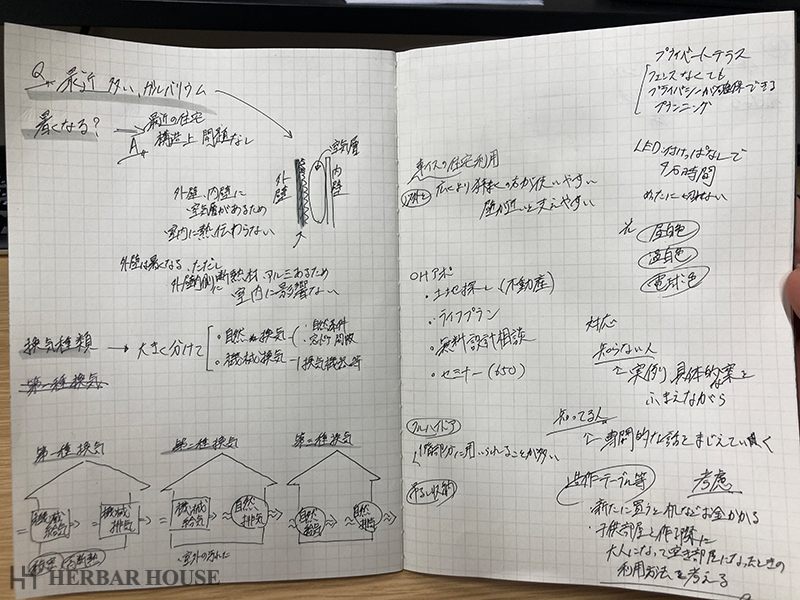 Q. 最近 多い、ガルバリウム
暑くなる?
最近の住宅
A. 構造上 問題なし
空気層
外壁
内壁
外壁、内壁に
空気層があるため
室内に熱伝わらない
外壁は暑くなる、ただし
外壁内側に断熱材、アルミあるため
室内に影響ない
換気種類 → 大きく分けて
・自然換気
・自然条件
・機械換気
換気機器等
第一種換気
第一種換気
機械給気
機械排気
第二種換気
機械給気
自然排気
室外の汚れた
第三種換気
自然給気
自然排気
プライベートテラス
フェンスなくても
プライバシーが確保できる
プランニング
車イスの住宅利用
広いより狭くの方が使いやすい
壁が近いと支えやすい
LED 付けっぱなしで
4万時間
めったに切れない
光
昼白色
温白色
電球色
OHアポ
・土地探し(不動産)
・ライフプラン
・無料設計相談
・セミナー(650)
対応
知らない人
実例、具体的な案を
ふまえながら
知ってる人
専門的な話をまじえていく
フルハイドア
1階部分に用いられることが多い
吊るし収納
造作テーブル等
考慮
・新たに買うと机などお金かかる
・子供部屋を作る際に
大人になって空き部屋になったときの
利用方法を考える
HERBAR HOUSE